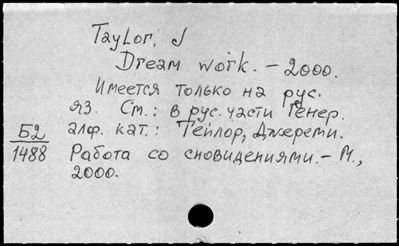 Taylor, J
Dream work. – 2000.
Имеется только на рус.
яз. См.: в рус. части Генер.
алф. кат.: Тейлор, Джереми.
Б2
1488
Работа со сновидениями. – М.,
2000.